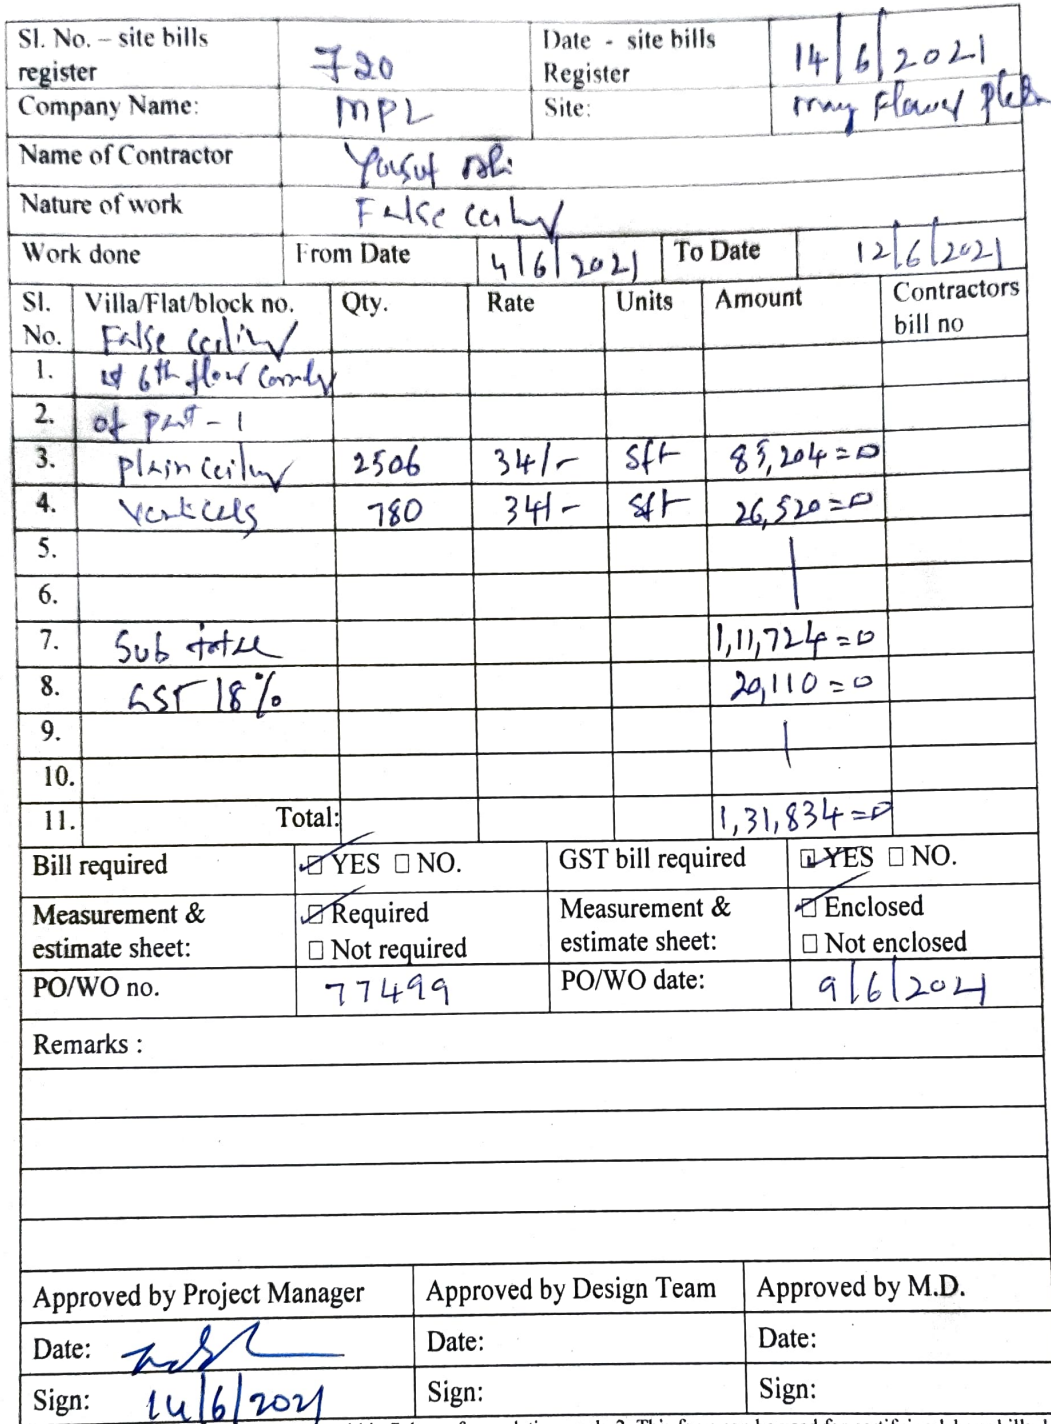 Sl. No. – site bills register 720 Date - site bills Register 14/6/2021
Company Name: MPL Site: may Flower
Name of Contractor Yousuf Ali
Nature of work False ceiling
Work done From Date 4/6/2021 To Date 12/6/2021
Sl. No. Villa/Flat/block no. Qty. Rate Units Amount Contractors bill no
False ceiling
1. 6th floor
2. of part - 1
3. plain ceiling 2506 34/- sft 85,204=0
4. Verticals 780 34/- sft 26,520=0
5.
6.
7. Sub total 1,11,724=0
8. GST 18% 20,110=0
9.
10.
11. Total: 1,31,834=0
Bill required YES NO. GST bill required YES NO.
Measurement & estimate sheet: Required Not required Measurement & estimate sheet: Enclosed Not enclosed
PO/WO no. 77499 PO/WO date: 9/6/2021
Remarks :
Approved by Project Manager Approved by Design Team Approved by M.D.
Date: Date: Date:
Sign: 14/6/2021 Sign: Sign: